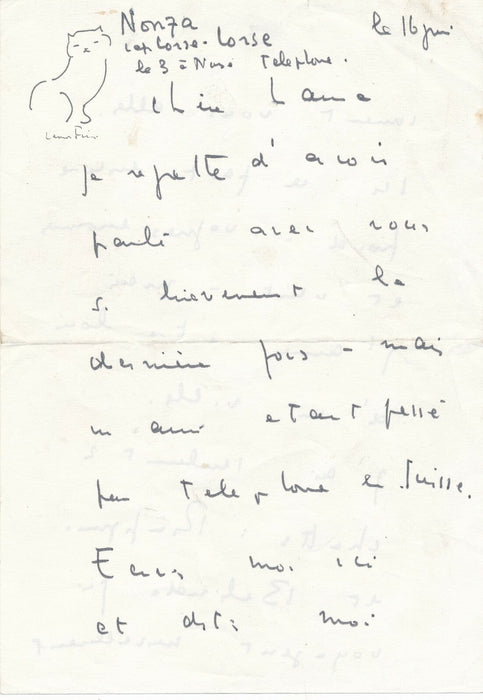 Nonza
cap Corse - Corse
le 3 à Nonza Telephone.
le 16 juin
Leonor Fini
Chère
je regrette d'avoir
parlé avec vous
si brievement la
dernière fois - mais
un ami etant pressé
par telephone en Suisse.
moi ici
et dites moi